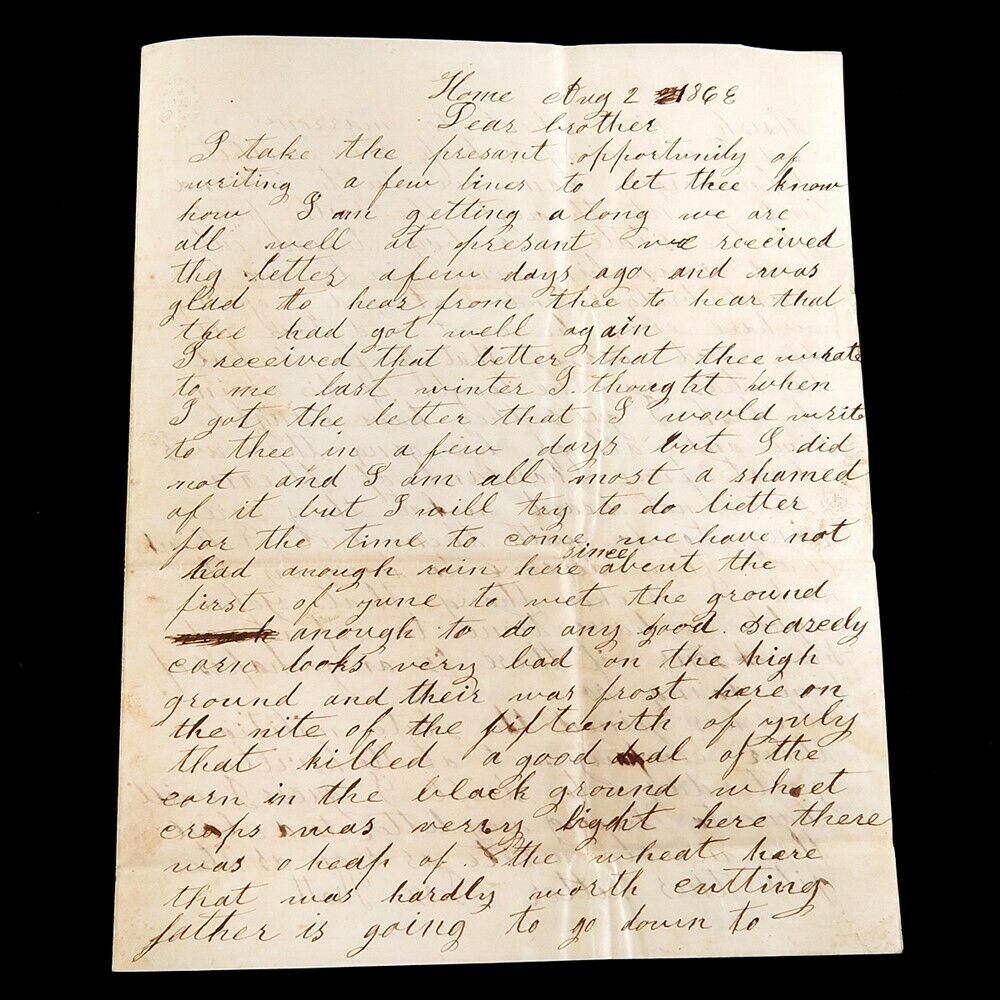 Home Aug 2 1868
Dear brother
I take the presant opportunity of
writing a few lines to let thee know
how I am getting a long we are
all well at presant we received
thy letter a few days ago and was
glad to hear from thee to hear that
thee had got well again
I received that letter that thee wrate
to me last winter I thought when
I got the letter that I would write
to thee in a few days but I did
not and I am all most a shamed
of it but I will try to do better
for the time to come we have not
since
had anough rain here about the
first of june to wet the ground
anough to do any good. scarcely
corn looks very bad on the high
ground and their was frost here on
the nite of the fifteenth of july
that killed a good deal of the
corn in the black ground wheet
crops was verry light here there
was a heap of the wheat here
that was hardly worth cutting
father is going to go down to